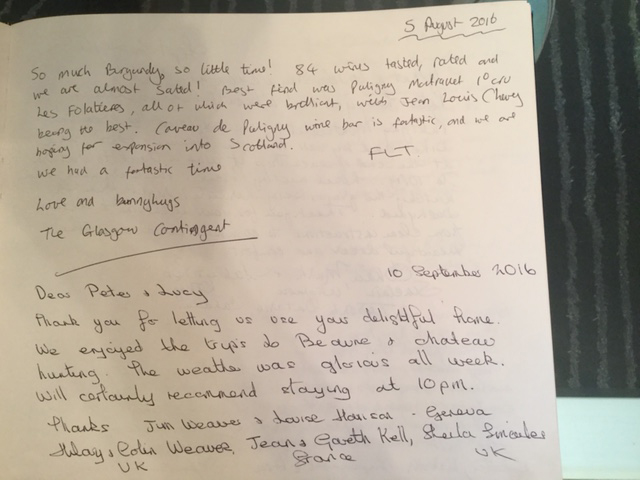 5 August 2016
So much Burgundy, so little time! 84 wines tasted, rated and
we are almost sated! Best find was Puligny Montrachet 1º cru
Les Folatières, all of which were brilliant, with Jean Louis Chavy
being the best. Caveau de Puligny wine bar is fantastic, and we are
hoping for expansion into Scotland.
FLT
we had a fantastic time
Love and bunnyhugs
The Glasgow Contingent
10 September 2016
Dear Peter & Lucy
Thank you for letting us use your delightful home.
We enjoyed the trips to Beaune & chateau
hunting. The weather was glorious all week.
Will certainly recommend staying at 10pm.
Thanks Jim Weaver & Louise Harrison - Geneva
Hilary & Colin Weaver, Jean & Gareth Kell, Sheila
UK France UK